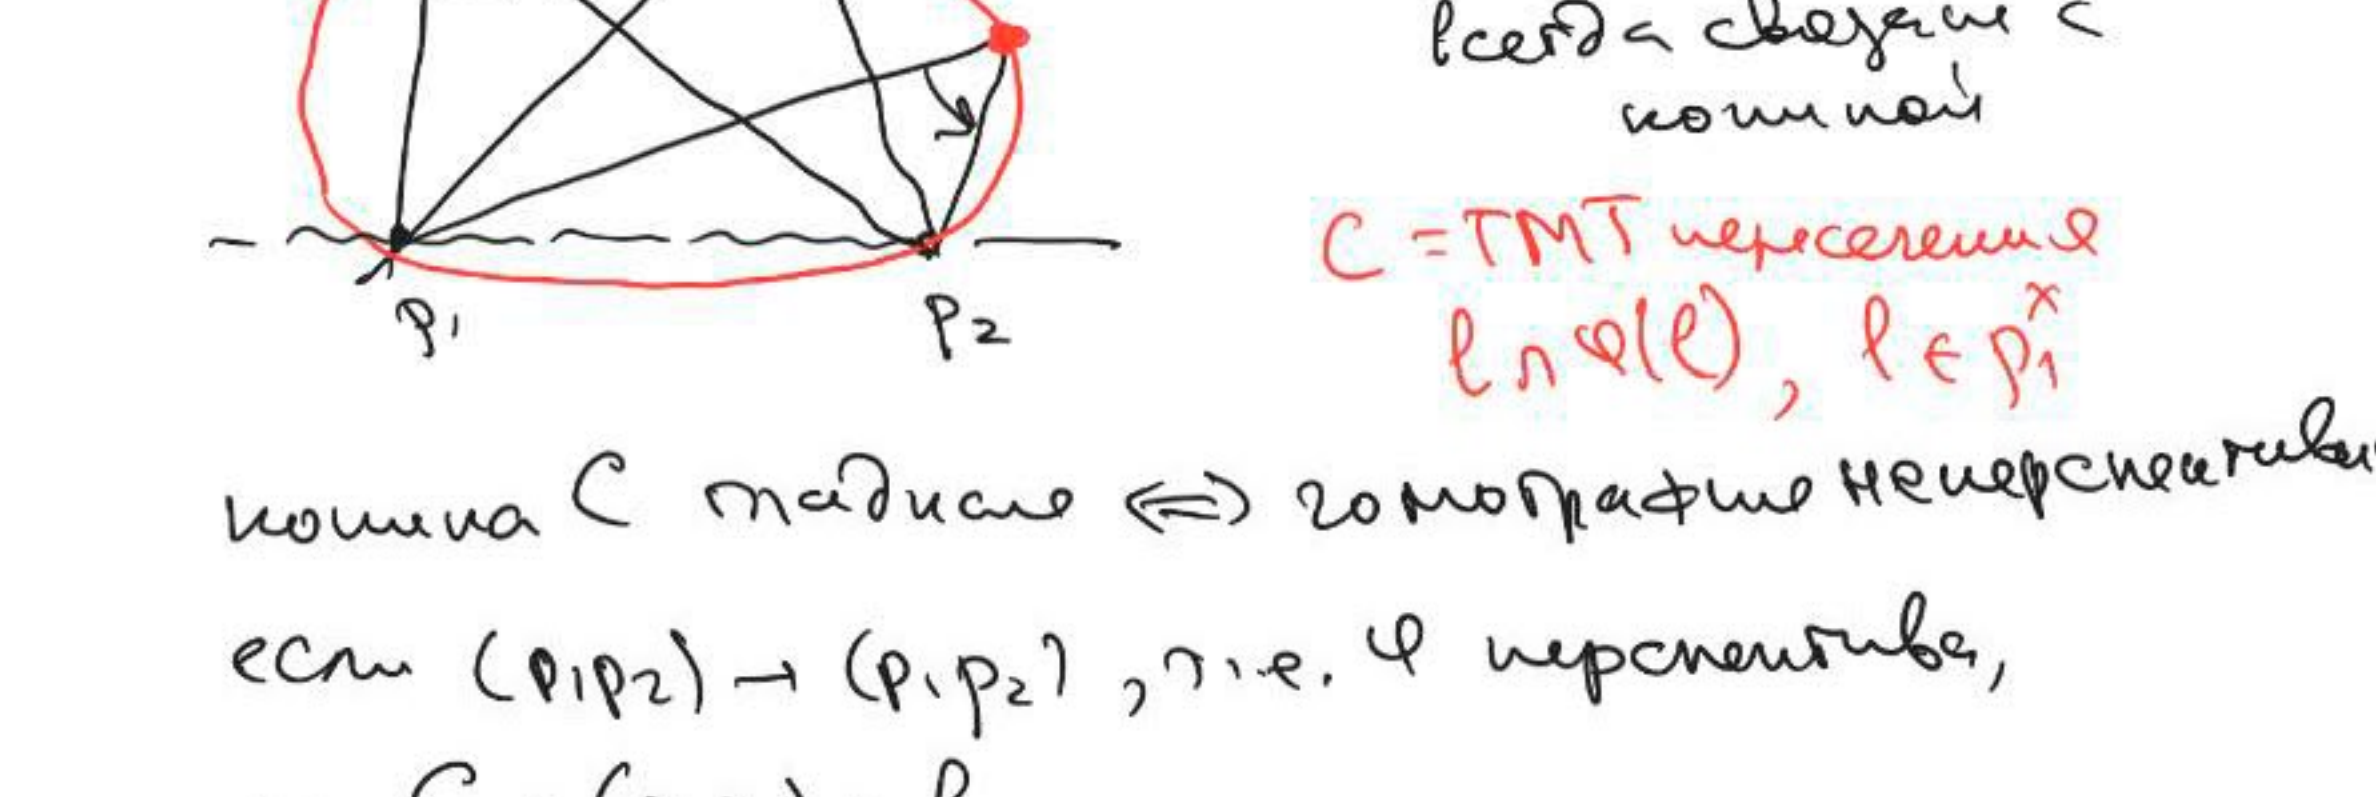 всегда связана с
коникой
C = ГМТ пересечения
l ∩ φ(l), l ∈ p₁ˣ
p₁ p₂
коника C гладкая ⇔ гомография неперспективн
если (p₁p₂) → (p₁p₂), т.е. φ перспектива,